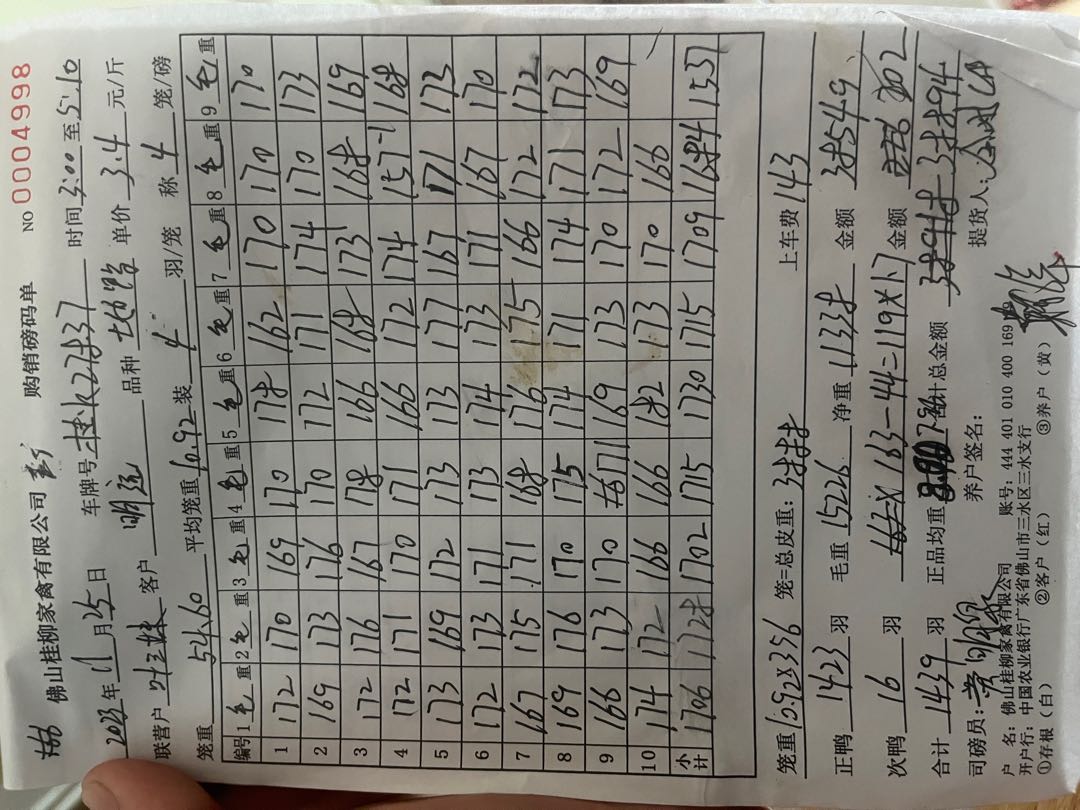 佛山桂柳家禽有限公司 购销磅码单 NO 0004998
2023年11月25日 车牌号 时间3:00至5:10
联营户 客户 明运 品种 单价3.4元/斤
笼重 54.60 平均笼重 10.92 装 4 羽/笼 称 4 笼/磅
编号 1毛重 2毛重 3毛重 4毛重 5毛重 6毛重 7毛重 8毛重 9毛重
1 172 170 169 170 178 162 170 170 170
2 169 173 176 170 172 171 174 170 173
3 172 176 167 178 166 168 173 168 169
4 172 171 170 171 166 172 174 157-1 168
5 173 169 172 173 173 177 167 171 173
6 172 173 171 173 174 173 171 167 170
7 167 175 171 168 176 175 166 172 172
8 169 176 170 175 174 171 174 171 173
9 166 173 170 171 169 173 170 172 169
10 174 172 166 166 182 173 170 166
小计 1706 1728 1702 1715 1730 1715 1709 1684 1537
笼重 10.92×356 笼=总皮重: 3888 上车费 143
正鸭 1423 羽 毛重 15226 净重 11338 金额 38549
次鸭 16 羽 163-44=119×1.7 金额 202
合计 1439 羽 正品均重 合计总金额 38894
司磅员: 养户签名: 提货人:
户 名: 佛山桂柳家禽有限公司 账号: 444 401 010 400 169
开户行: 中国农业银行广东省佛山市三水区三水支行
①存根(白) ②客户(红) ③养户(黄)